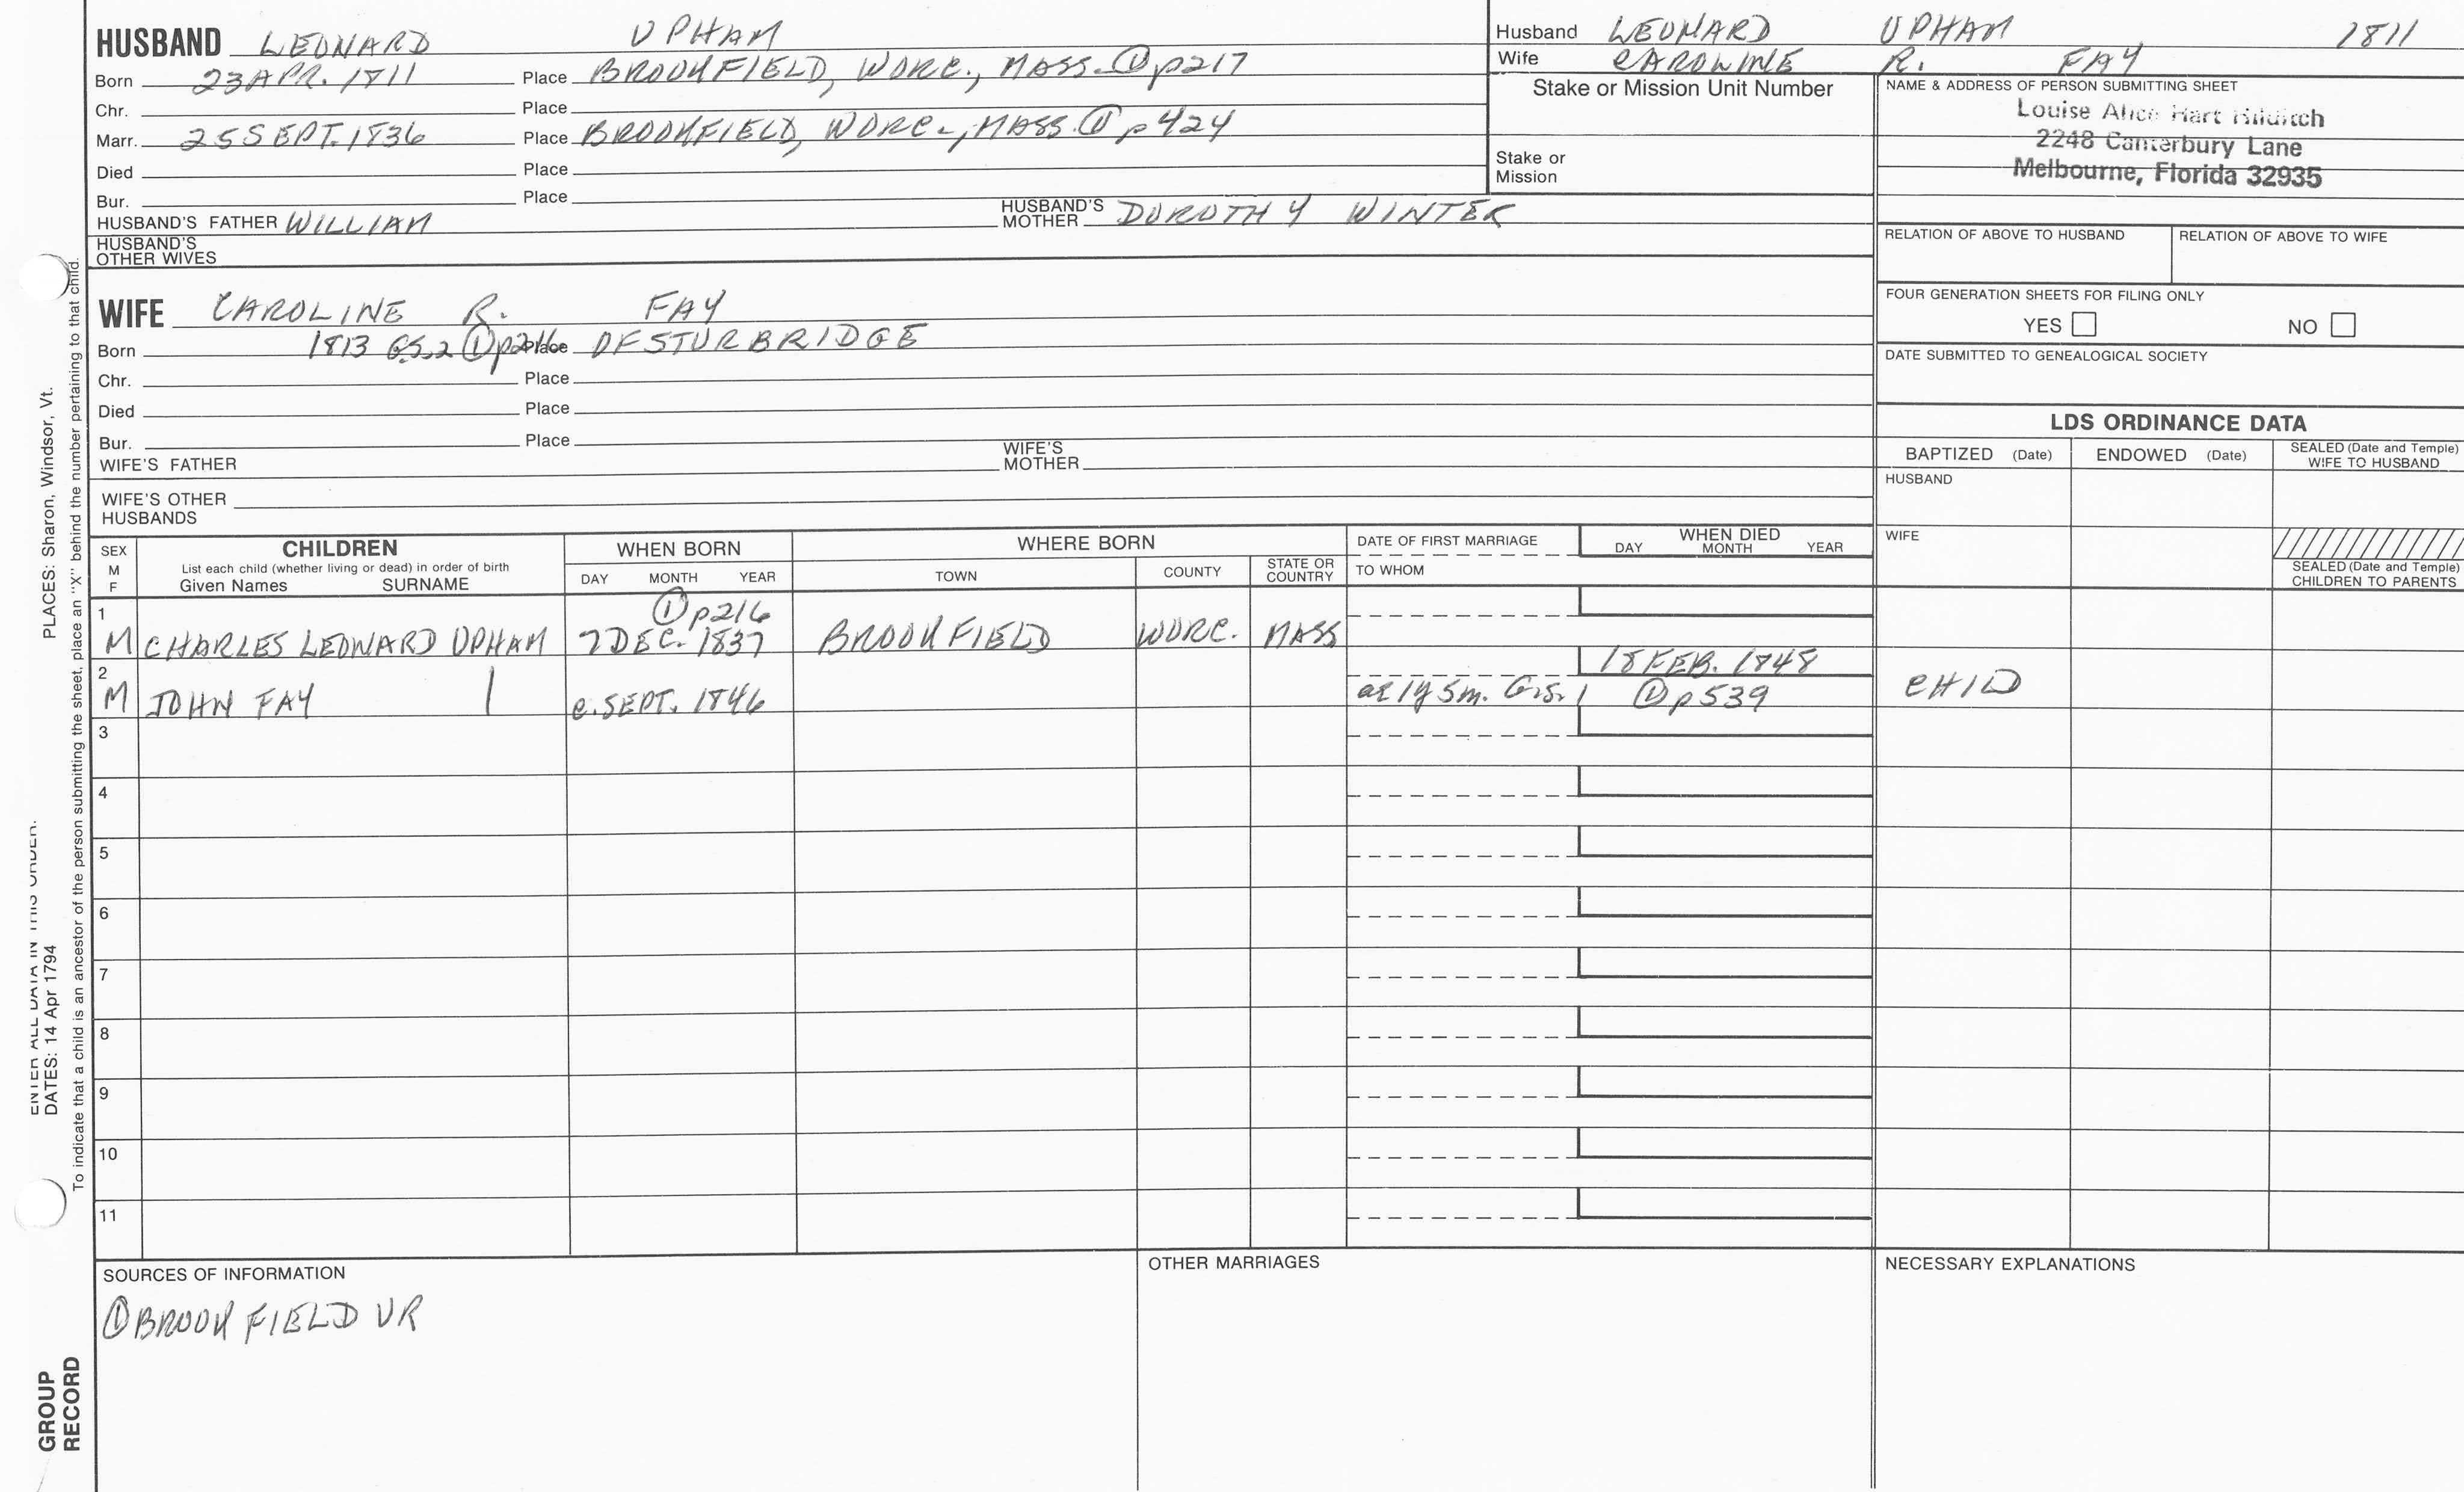 HUSBAND LEONARD UPHAM
Born 23 APR. 1811 Place BROOKFIELD, WORC., MASS. ① p217
Chr. Place
Marr. 25 SEPT. 1836 Place BROOKFIELD, WORC., MASS. ① p424
Died Place
Bur. Place
HUSBAND'S FATHER WILLIAM HUSBAND'S MOTHER DOROTHY WINTER
HUSBAND'S OTHER WIVES
WIFE CAROLINE R. FAY
Born 1813 G.S.2 ① p216 Place OF STURBRIDGE
Chr. Place
Died Place
Bur. Place
WIFE'S FATHER WIFE'S MOTHER
WIFE'S OTHER HUSBANDS
Husband LEONARD UPHAM 1811
Wife CAROLINE R. FAY
Stake or Mission Unit Number
Stake or Mission
NAME & ADDRESS OF PERSON SUBMITTING SHEET
Louise Alice Hart
2248 Canterbury Lane
Melbourne, Florida 32935
RELATION OF ABOVE TO HUSBAND RELATION OF ABOVE TO WIFE
FOUR GENERATION SHEETS FOR FILING ONLY
YES NO
DATE SUBMITTED TO GENEALOGICAL SOCIETY
LDS ORDINANCE DATA
BAPTIZED (Date) ENDOWED (Date) SEALED (Date and Temple) WIFE TO HUSBAND
HUSBAND
WIFE
SEALED (Date and Temple) CHILDREN TO PARENTS
SEX M F
CHILDREN
List each child (whether living or dead) in order of birth
Given Names SURNAME
WHEN BORN
DAY MONTH YEAR
WHERE BORN
TOWN COUNTY STATE OR COUNTRY
DATE OF FIRST MARRIAGE
TO WHOM
WHEN DIED
DAY MONTH YEAR
1 ① p216
M CHARLES LEONARD UPHAM 7 DEC. 1837 BROOKFIELD WORC. MASS
2 18 FEB. 1848
M JOHN FAY | c. SEPT. 1846 ae 1y 5m. G.S. 1 ① p539 CHILD
3
4
5
6
7
8
9
10
11
SOURCES OF INFORMATION
① BROOKFIELD VR
OTHER MARRIAGES
NECESSARY EXPLANATIONS
PLACES: Sharon, Windsor, Vt.
ENTER ALL DATA IN THIS ORDER.
DATES: 14 Apr 1794
To indicate that a child is an ancestor of the person submitting the sheet, place an "X" behind the number pertaining to that child.
GROUP
RECORD